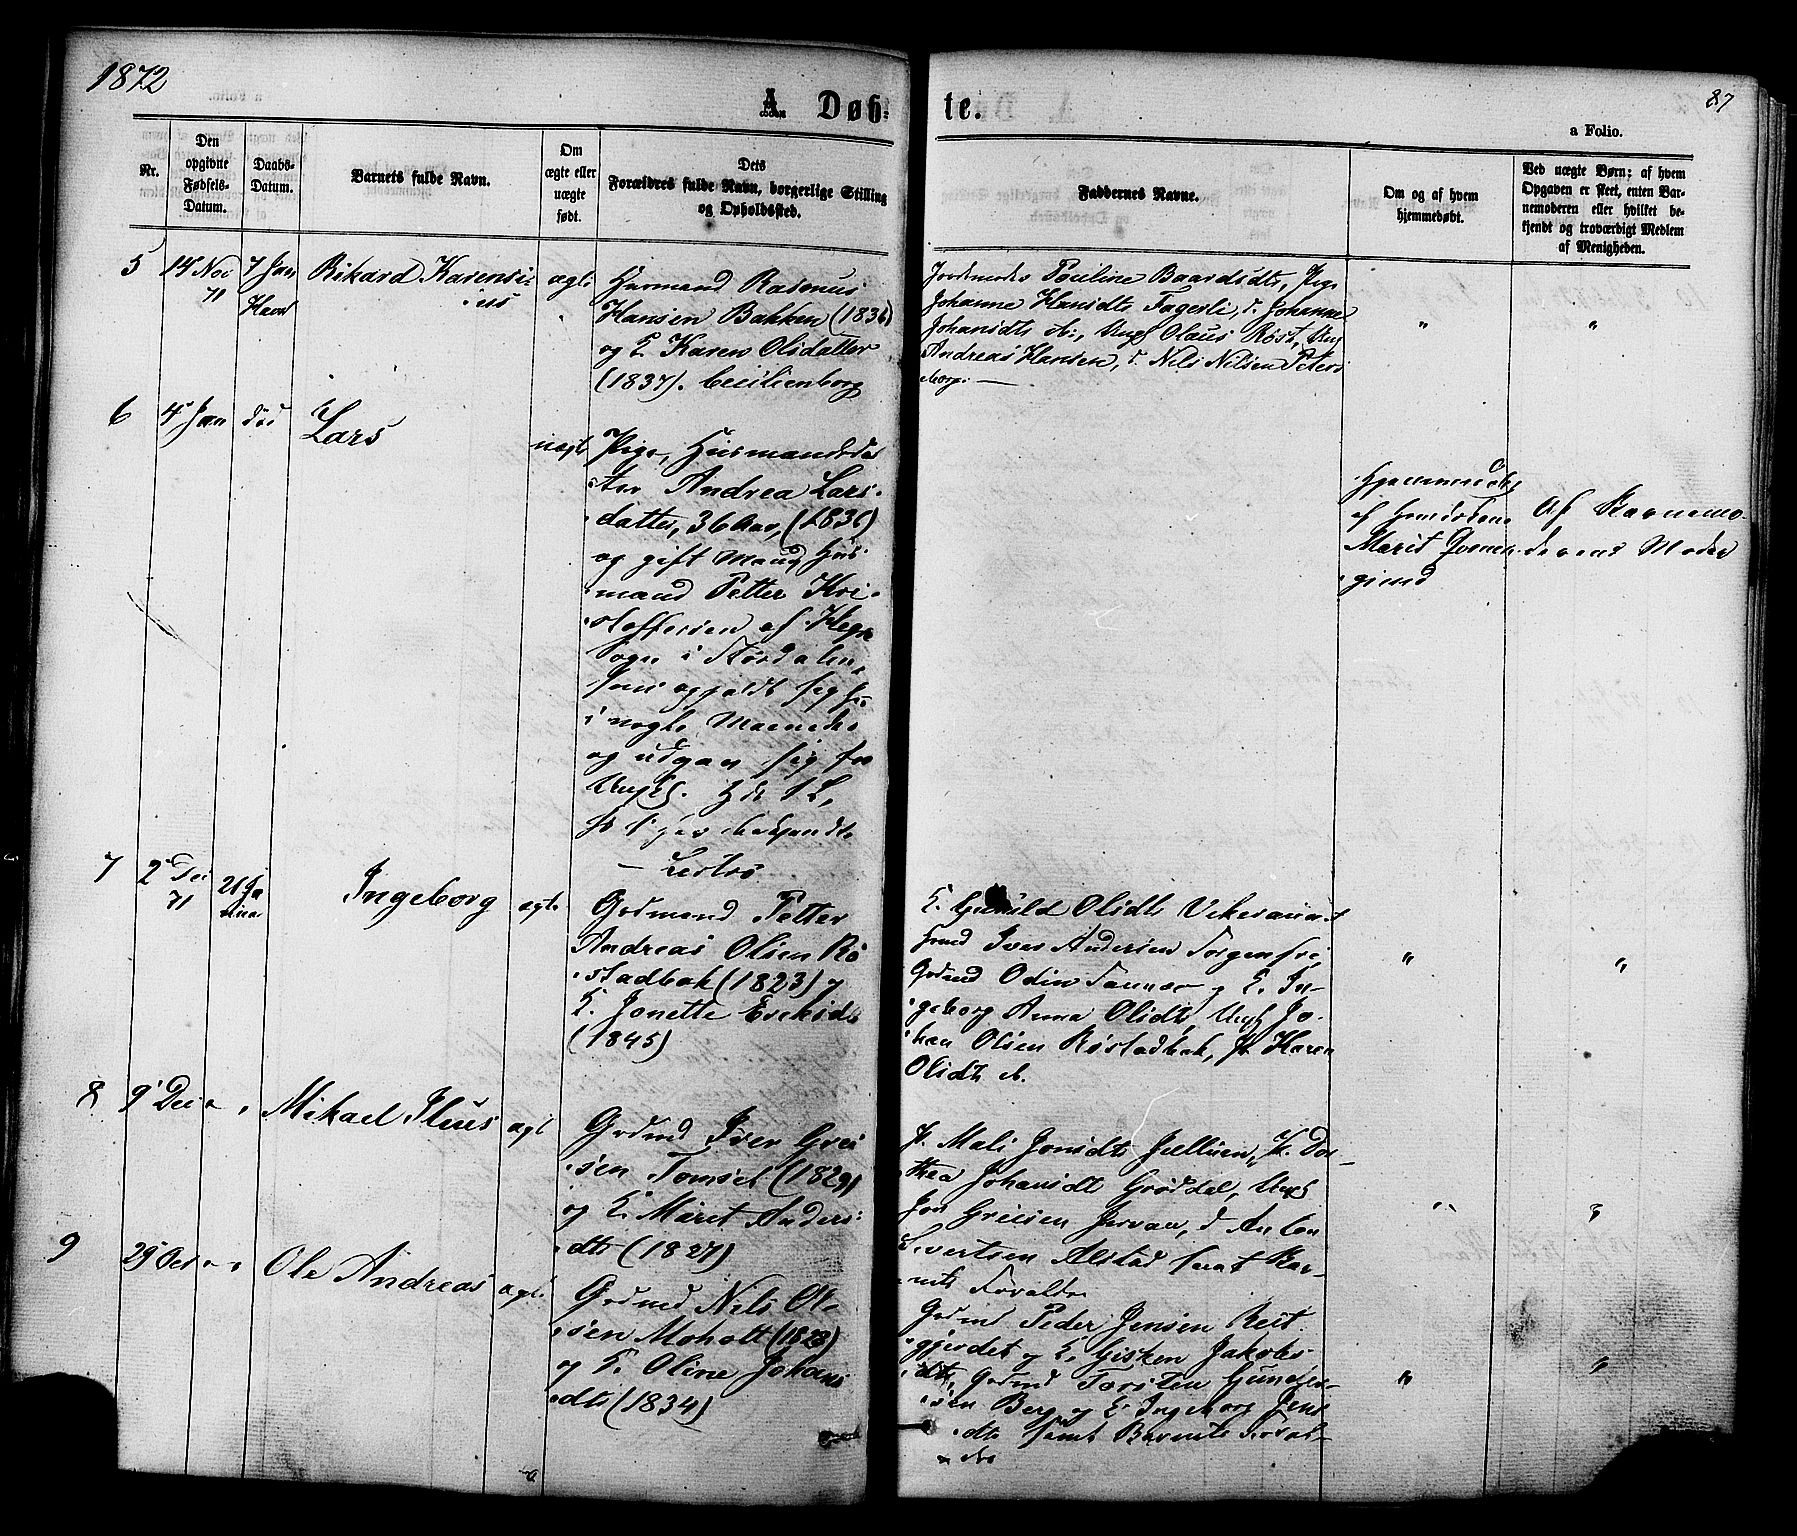 1872
87
A. Døb-
te.
a Folio.
Nr.
Den opgivne Fødsels-Datum.
Daabs-Datum.
Barnets fulde Navn.
Om ægte eller uægte født.
Dets Forældres fulde Navn, borgerlige Stilling og Opholdssted.
Faddernes Navne.
Om og af hvem hjemmedøbt.
Ved uægte Børn: af hvem Opgaven er skeet, enten Barnemoderen eller hvilket bekjendt og troværdigt Medlem af Menigheden.
5
14 Nov 71
7 Jan
Rikard Karensi-
us
ægte
Husmand Rasmus
Hansen Bakken (1836)
og K. Karen Olsdatter
(1837). Cecilienborg
Jordmoder Pauline Baardsdt, Pige
Johanne Hansdt Fagerli, d. Johanne
Johansdt ib., Ungk Olaus Röst, Ungk
Andreas Hansen, d. Nils Nilsen Peters
borg. —
"
"
6
4 Jan
död
Lars
uægte
Pige, Husmandsda
tter Andrea Lars-
datter, 36 Aar, (1836)
og gift Mand Hus-
mand Petter Kri-
stoffersen af Hegre
Sogn i Stördalen,
som opholdt sig her
i nogle Maaneder
og udgav sig for
Ungk.
Hjemmedöbt
af
Marit
Af Barnemo-
derens Moder
7
2 Dec 71
21 Ja
nuar
Ingeborg
ægte
Grdmand Petter
Andreas Olsen Rö
stadbak (1823) og
K. Jonette Eskilsdt
(1845)
K. Gunild Olsdt
Iver Andersen Sorgenfri,
Grdmd Odin og K. In-
geborg Anna Olsdt, Ungk Jo-
han Olsen Röstadbak, P. Karen
Olsdt ib.
"
"
8
9 Dec
" "
Mikael
ægte
Grdmd Iver
sen Tomset (1829)
og K. Marit Anders-
dt (1827)
P. Mali Jonsdt K. Dor-
thea Johansdt Gröddal, Ungk
Jon d. Anton
Sivertsen Alstad samt Bar-
nets Forældre
"
"
9
29 Dec
" "
Ole Andreas
ægte
Grdmd Nils Ol-
sen Moholt (1828)
og K. Oline Johans
dt (1834)
Grdmd Peder Jensen Reit
gjerdet og K. Gisken Jakobs
dt, Grdmd Torsten Gunder-
sen Berg og K. Ingeborg Jens
dt samt Barnets Foræl-
dre
"
"